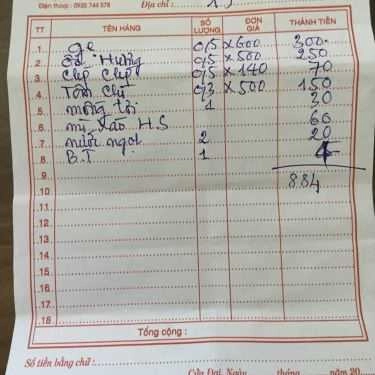 Điện thoại : 0935 744 578 Địa chỉ :
TT TÊN HÀNG SỐ LƯỢNG ĐƠN GIÁ THÀNH TIỀN
1 ghẹ 0,5 × 600 300
2 ốc Hương 0,5 × 500 250
3 chíp chíp 0,5 × 140 70
4 Tôm chì 0,3 × 500 150
5 mồng tơi 1 30
6 mì xào H.S 60
7 nước ngọt 2 20
8 B.T 1 4
9 884
10
11
12
13
14
15
16
17
18
Tổng cộng :
Số tiền bằng chữ :
Cửa Đại, Ngày tháng năm 20